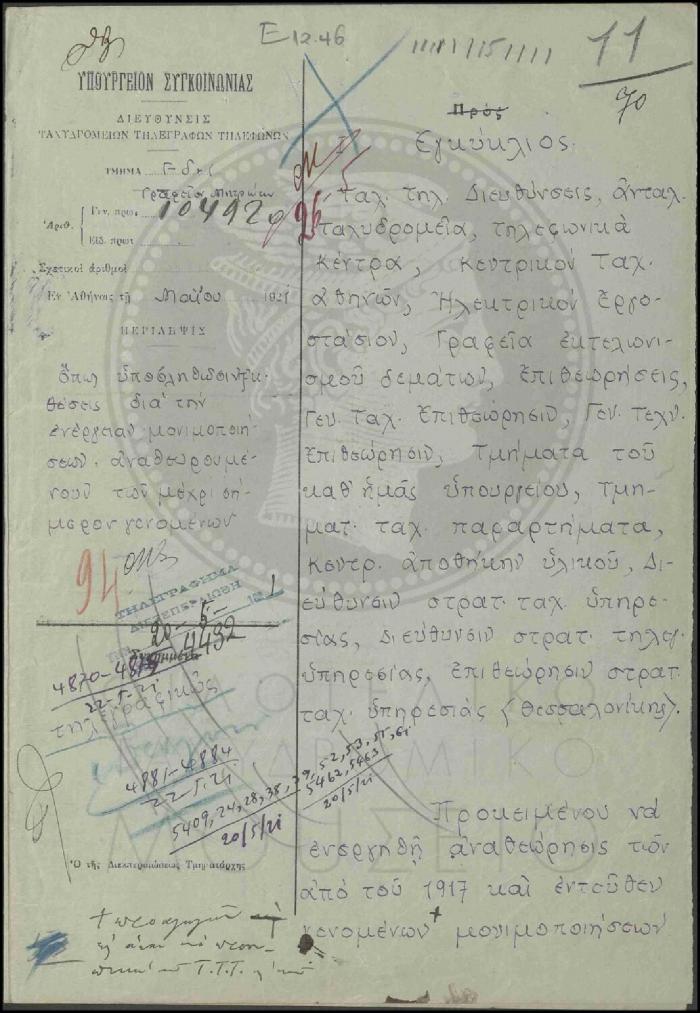 Ε 12.46
11
70
ΥΠΟΥΡΓΕΙΟΝ ΣΥΓΚΟΙΝΩΝΙΑΣ
ΔΙΕΥΘΥΝΣΙΣ
ΤΑΧΥΔΡΟΜΕΙΩΝ ΤΗΛΕΓΡΑΦΩΝ ΤΗΛΕΦΩΝΩΝ
ΤΜΗΜΑ
Γραφεῖον Μητρώων
Ἀριθ.
Γεν. πρωτ. 104920
Εἰδ. πρωτ.
Σχετικοὶ ἀριθμοὶ
Ἐν Ἀθήναις τῇ Μαΐου 1921
ΠΕΡΙΛΗΨΙΣ
ὅπως ὑποβληθῶσιν ἐκ-
θέσεις διὰ τὴν
ἐνέργειαν μονιμοποιή-
σεων ἀναθεωρουμέ-
νων τῶν μέχρι σή-
μερον γενομένων
94
ΤΗΛΕΓΡΑΦΗΜΑ
ΔΙΕΞΕΠΕΡΑΙΩΘΗ
20-5-1921
4432
4870-4879
22-5-21
τηλεγραφικῶς
4881-4884
22-5-21
5409, 24, 28, 38, 39, 52, 53, 55, 61
5462, 5463
20/5/21
20/5/21
Ὁ τῆς Διεκπεραιώσεως Τμηματάρχης
Πρὸς
Ἐγκύκλιος.
26
Ταχ. τηλ. Διευθύνσεις, ἀνταλ.
ταχυδρομεῖα, τηλεφωνικὰ
κέντρα, κεντρικὸν ταχ.
Ἀθηνῶν, Ἠλεκτρικὸν Ἐργο-
στάσιον, Γραφεῖα ἐκτελωνι-
σμοῦ δεμάτων, Ἐπιθεωρήσεις,
Γεν. ταχ. Ἐπιθεώρησιν, Γεν. τεχν.
Ἐπιθεώρησιν, Τμήματα τοῦ
καθ' ἡμᾶς ὑπουργείου, Τμη-
ματ. ταχ. παραρτήματα,
κεντρ. ἀποθήκην ὑλικοῦ, Δι-
εύθυνσιν στρατ. ταχ. ὑπηρε-
σίας, Διεύθυνσιν στρατ. τηλεγ.
ὑπηρεσίας, Ἐπιθεώρησιν στρατ.
ταχ. ὑπηρεσίας (Θεσσαλονίκης).
Προκειμένου νὰ
ἐνεργηθῇ ἀναθεώρησις τῶν
ἀπὸ τοῦ 1917 καὶ ἐντεῦθεν
γενομένων + μονιμοποιήσεων